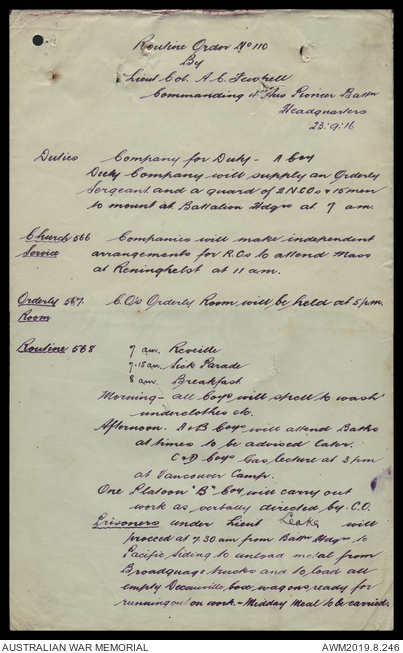 Routine Order No 110
By
Lieut Col. A. C. Fewtrell
Commanding 1st Aus Pioneer Battn
Headquarters
23.9.16
Duties Company for Duty - A Coy
Duty Company will supply an Orderly
Sergeant and a guard of 2 N.C.Os & 15 men
to mount at Battalion Hdqrs at 7 am.
Church 566 Companies will make independent
Service arrangements for R.Cs to attend Mass
at Reninghelst at 11 am.
Orderly 567. C.O's Orderly Room will be held at 5 pm.
Room
Routine 568 7 am. Reveille
7.15 am Sick Parade
8 am. Breakfast
Morning - all Coys will spell to wash
underclothes etc.
Afternoon. A & B Coys will attend Baths
at times to be advised later.
C & D Coys Gas lecture at 3 pm
at Vancouver Camp.
One Platoon "B" Coy will carry out
work as verbally directed by C.O.
Prisoners under Lieut Leake will
proceed at 7.30 am from Battn Hdqrs to
Pacific Siding to unload metal from
Broadguage trucks and to load all
empty Decauville box wagons ready for
running out on work. - Midday Meal to be carried.
AUSTRALIAN WAR MEMORIAL
AWM2019.8.246